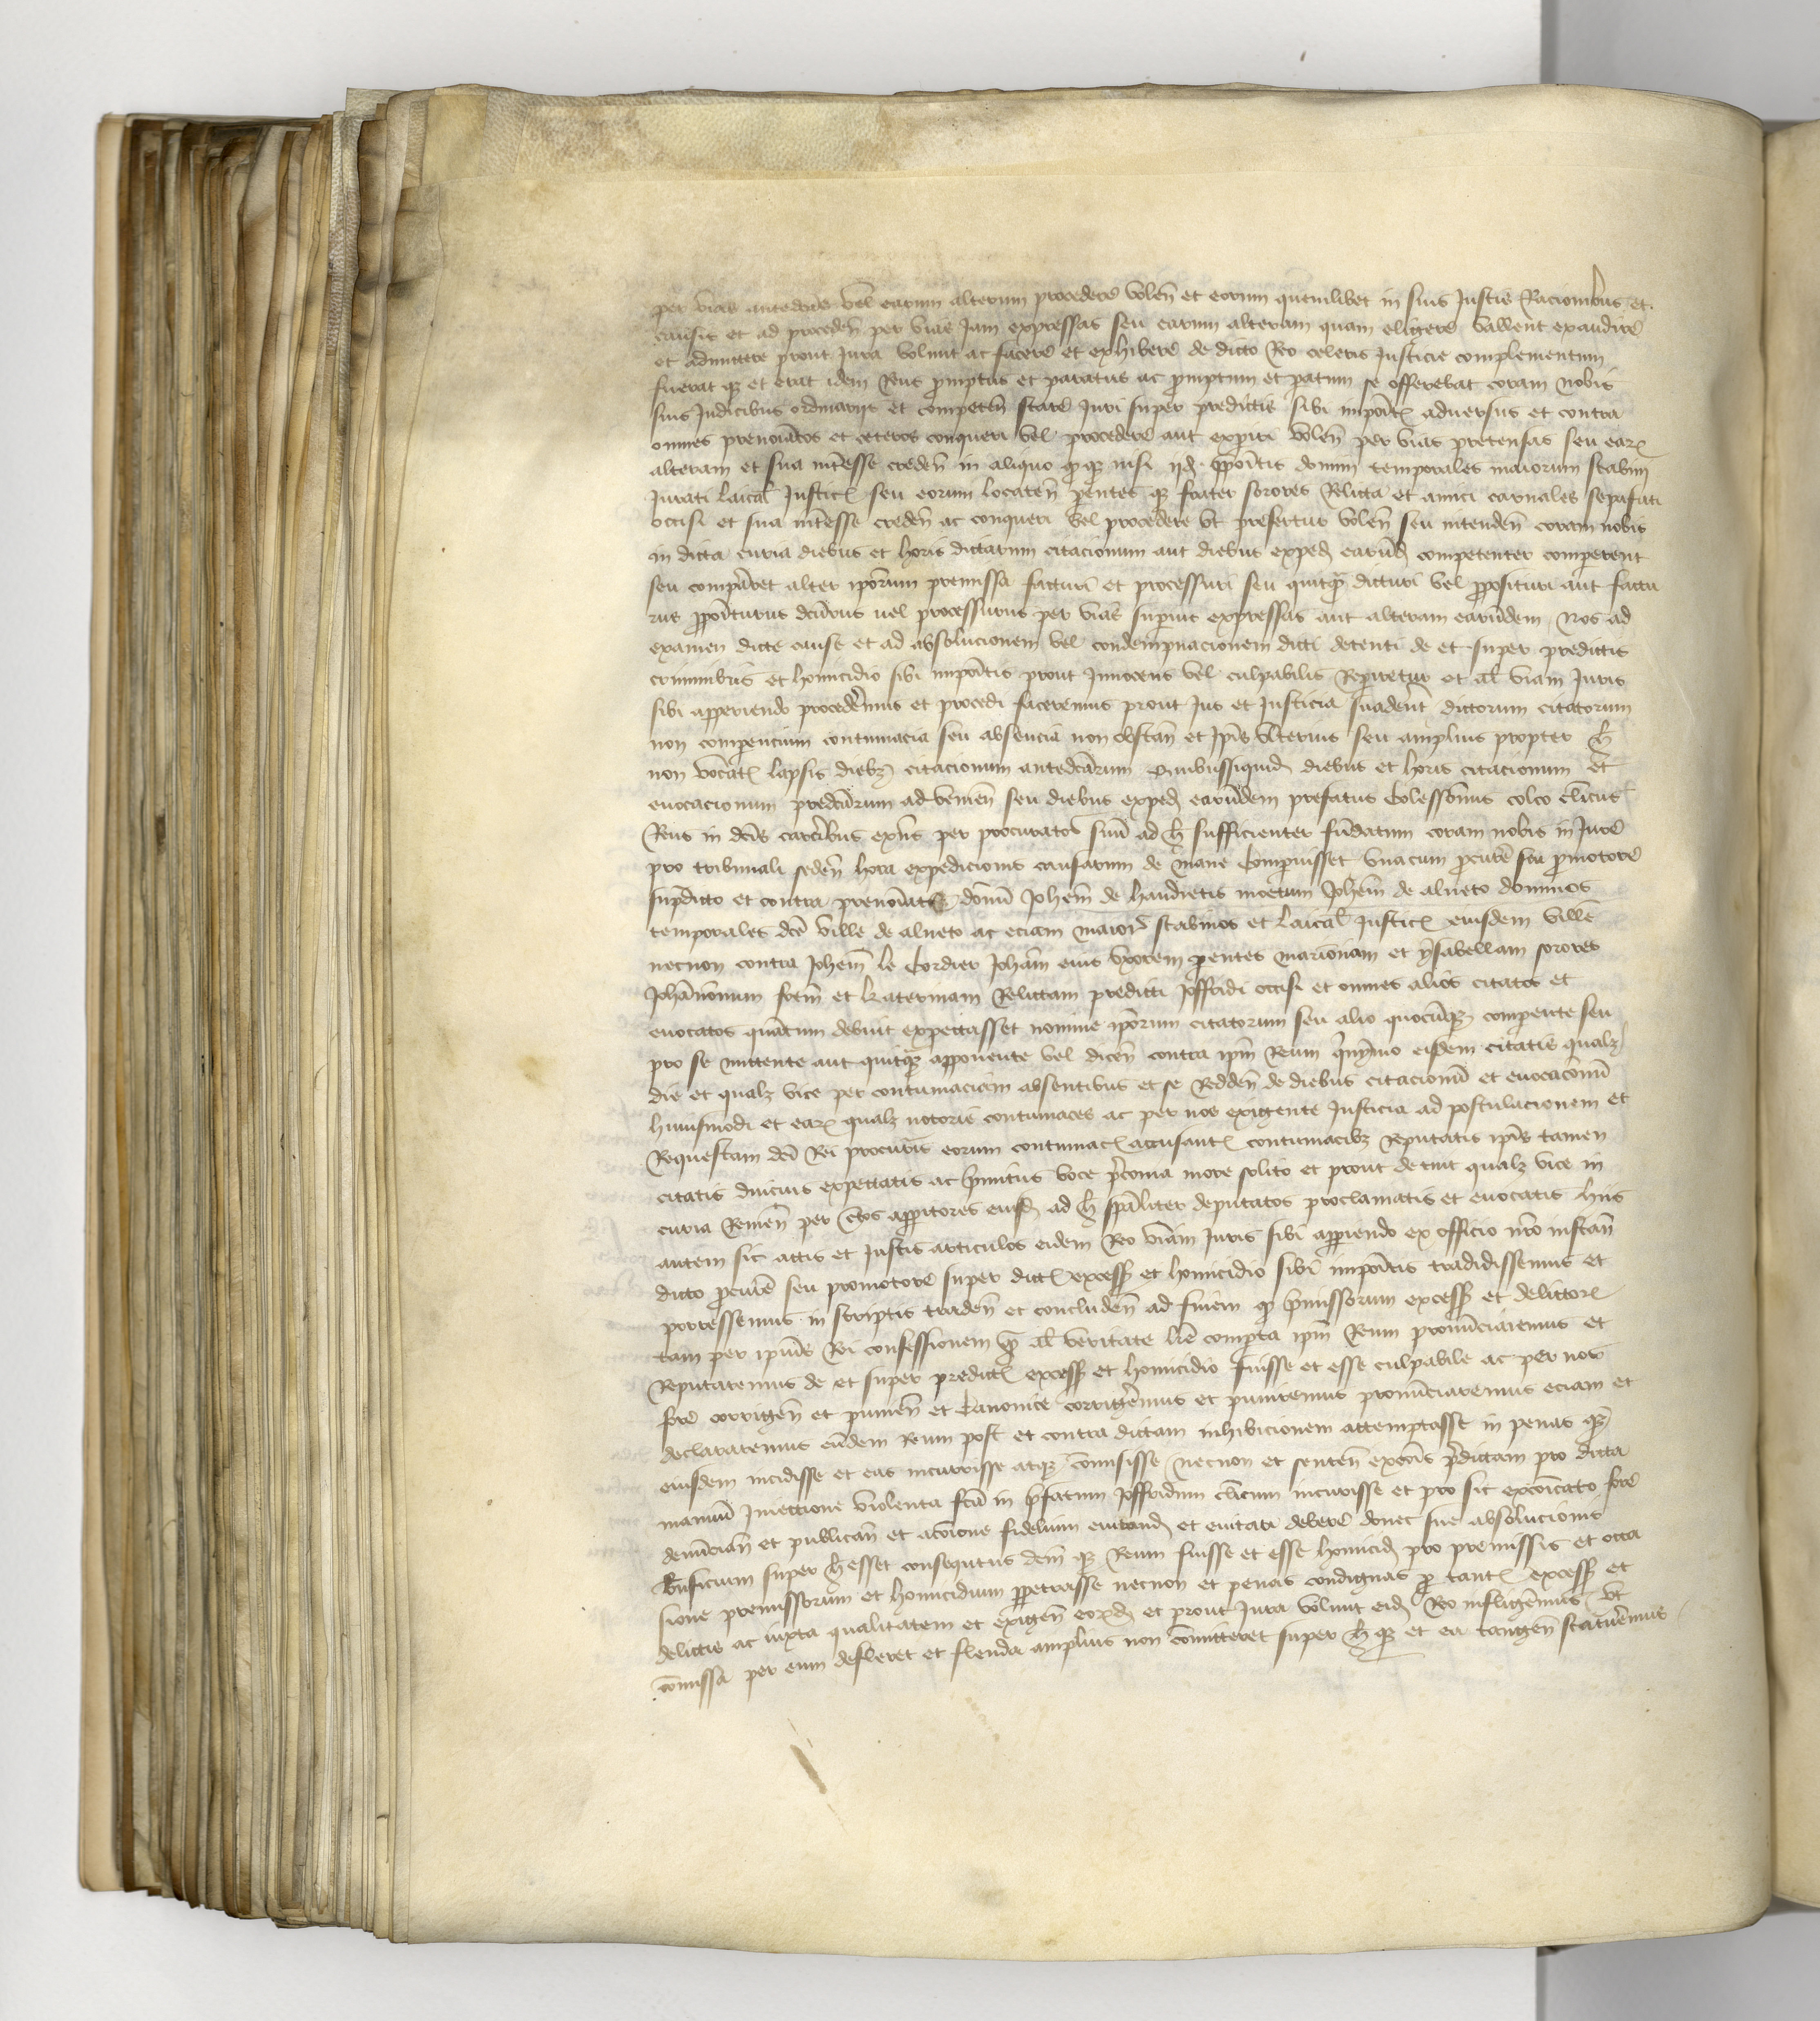 per vias antedictas vel earum alterum procedere volen̄ et eorum quemlibet in suis Justis Racionibus et
causis et ad proceden̄ per vias Jam expressas seu earum alteram quam eligere vallent exaudire
et admittere prout Jura volunt ac facere et exhibere de dicto Reo celeris Justicie complementum
fuerat q et erat idem Reus p̄mptus et paratus ac p̄mptum et p̄atum se offerebat coram nobis
suis Judicibus ordinariis et competen̄ stare Juri super predictis sibi impoīt adversus et contra
omnes prenoīatos et ceteros conqueri vel procedere aut experiri volen̄ per vias pretensas seu ear
alteram et sua interesse creden̄ in aliquo q nisi domini temporales maiorum scabini
Jurati laical Justic seu eorum locaten̄ p̄entes q frater sorores Relicta et amici carnales sepafati
occisi et sua interesse creden̄ ac conqueri vel procedere vt prefertur volen̄ seu intenden̄ coram nobis
in dicta curia diebus et horis dictarum citacionum aut diebus exped earūd competenter comperent
seu comparet alter ipōrum premissa facturi et processuri seu quitq dicturi vel p̄posituri aut factu
rus p̄poīturus dcūrus uel processurus per vias superius expressas aut alteram earūdem Nos ad
examen dicte cause et ad absolucionem vel condempnacionem dicti detenti de et super predictis
criminibus et homicidio sibi impoītis prout Innocens vel culpabilis Reperiretur et al viam Juris
sibi apperiendo procederemus et procedi faceremus prout Jus et Justicia suadent dictorum citatorum
non comperencium contumacia seu absencia non obstan̄ et Ip̄is vlterius seu amplius propter h
non vocat lapsis dieb citacionum antedcārum Quibussiquid diebus et horis citacionum et
euocacionum predcārum aduenien̄ seu diebus exped earūdem prefatus Colessonus colco clīcus
Reus in dcīs carcībus exīs per procurator suū ad h sufficienter fūdatum coram nobis in Jure
pro tribunali seden̄ hora expedicionis causarum de mane Comperuisset vnacum p̄curē seu p̄motore
sup̄dicto et contra prenoīat domū Johem̄ de haudretis Johem̄ de alneto dominos
temporales dcē ville de alneto ac eciam maior scabinos et laical Justic eiusdem ville
necnon contra Johem̄ le Cordier Johan̄ eius vxorem p̄entes marionam et ysabellam sorores
Johānonum fr̄em et katerinam Relictam predicti Joffridi occisi et omnes alios citatos et
euocatos quātum debuit expectasset nomine ipōrum citatorum seu alio quocūq comperente seu
pro se mittente aut quitq̄ apponente vel dicen̄ contra ip̄m Reum eisdem citatis qual
die et qual vice per contumaciam absentibus et se Redden̄ de diebus citacionū et euocacōnū
huiusmodi et ear qual notorie contumaces ac per nos exigente Justicia ad postulacionem et
Requestam dcī Rei procuris̄ eorum contumac accusant contumacib Reputatis ip̄is tamen
citatis diucius expectatis ac p̄mitus voce p̄conia more solito et prout decuit qual vice in
curia Remen̄ per ūros apparitores eiusd ad h sp̄aliter deputatos proclamatis et euocatis hiis
autem sic actis et Justis articulos eidem Reo viam Juris sibi apperiendo ex officio nr̄o instan̄
dicto p̄curē seu promotore super dict excess et homicidio sibi impoītis tradidissemus et
porrexissemus in scriptis traden̄ et concluden̄ ad finem q p̄missorum excess et delictor
tam per ipuīs Rei confessionem q al veritate compta ip̄m Reum pronūciaremus et
Reputaremus de et super predict excess et homicidio fuisse et esse culpabile ac per nos
fore corrigen̄ et punien̄ et Canonice corrigeremus et puniremus pronūciaremus eciam et
declararemus eūdem Reum post et contra dictam inhibicionem attemptasse in penas q
eiusdem incidisse et eas incurrisse atq cōmisisse necnon et senten̄ excoīs p̄dictam pro dicta
manuū Iniectione violenta fcā in p̄fatum Joffridum clīcum incurrisse et pro sic excoīcato fore
denūcian̄ et publican̄ et acoīone fidelium euitand et euitari debere donec sue absolucionis
Bn̄ficium super h esset consequtus dem̄ q Reum fuisse et esse homicid pro premissis et occa
sione premissorum et homicidium p̄petrasse necnon et penas condignas p tant excess et
delictis ac iuxta qualitatem et exigen̄ eord et prout Jura volunt eid Reo infligeremus vt
cōmissa per eum defleret et flenda amplius non cōmitteret super h q et ea tangen̄ statueremus